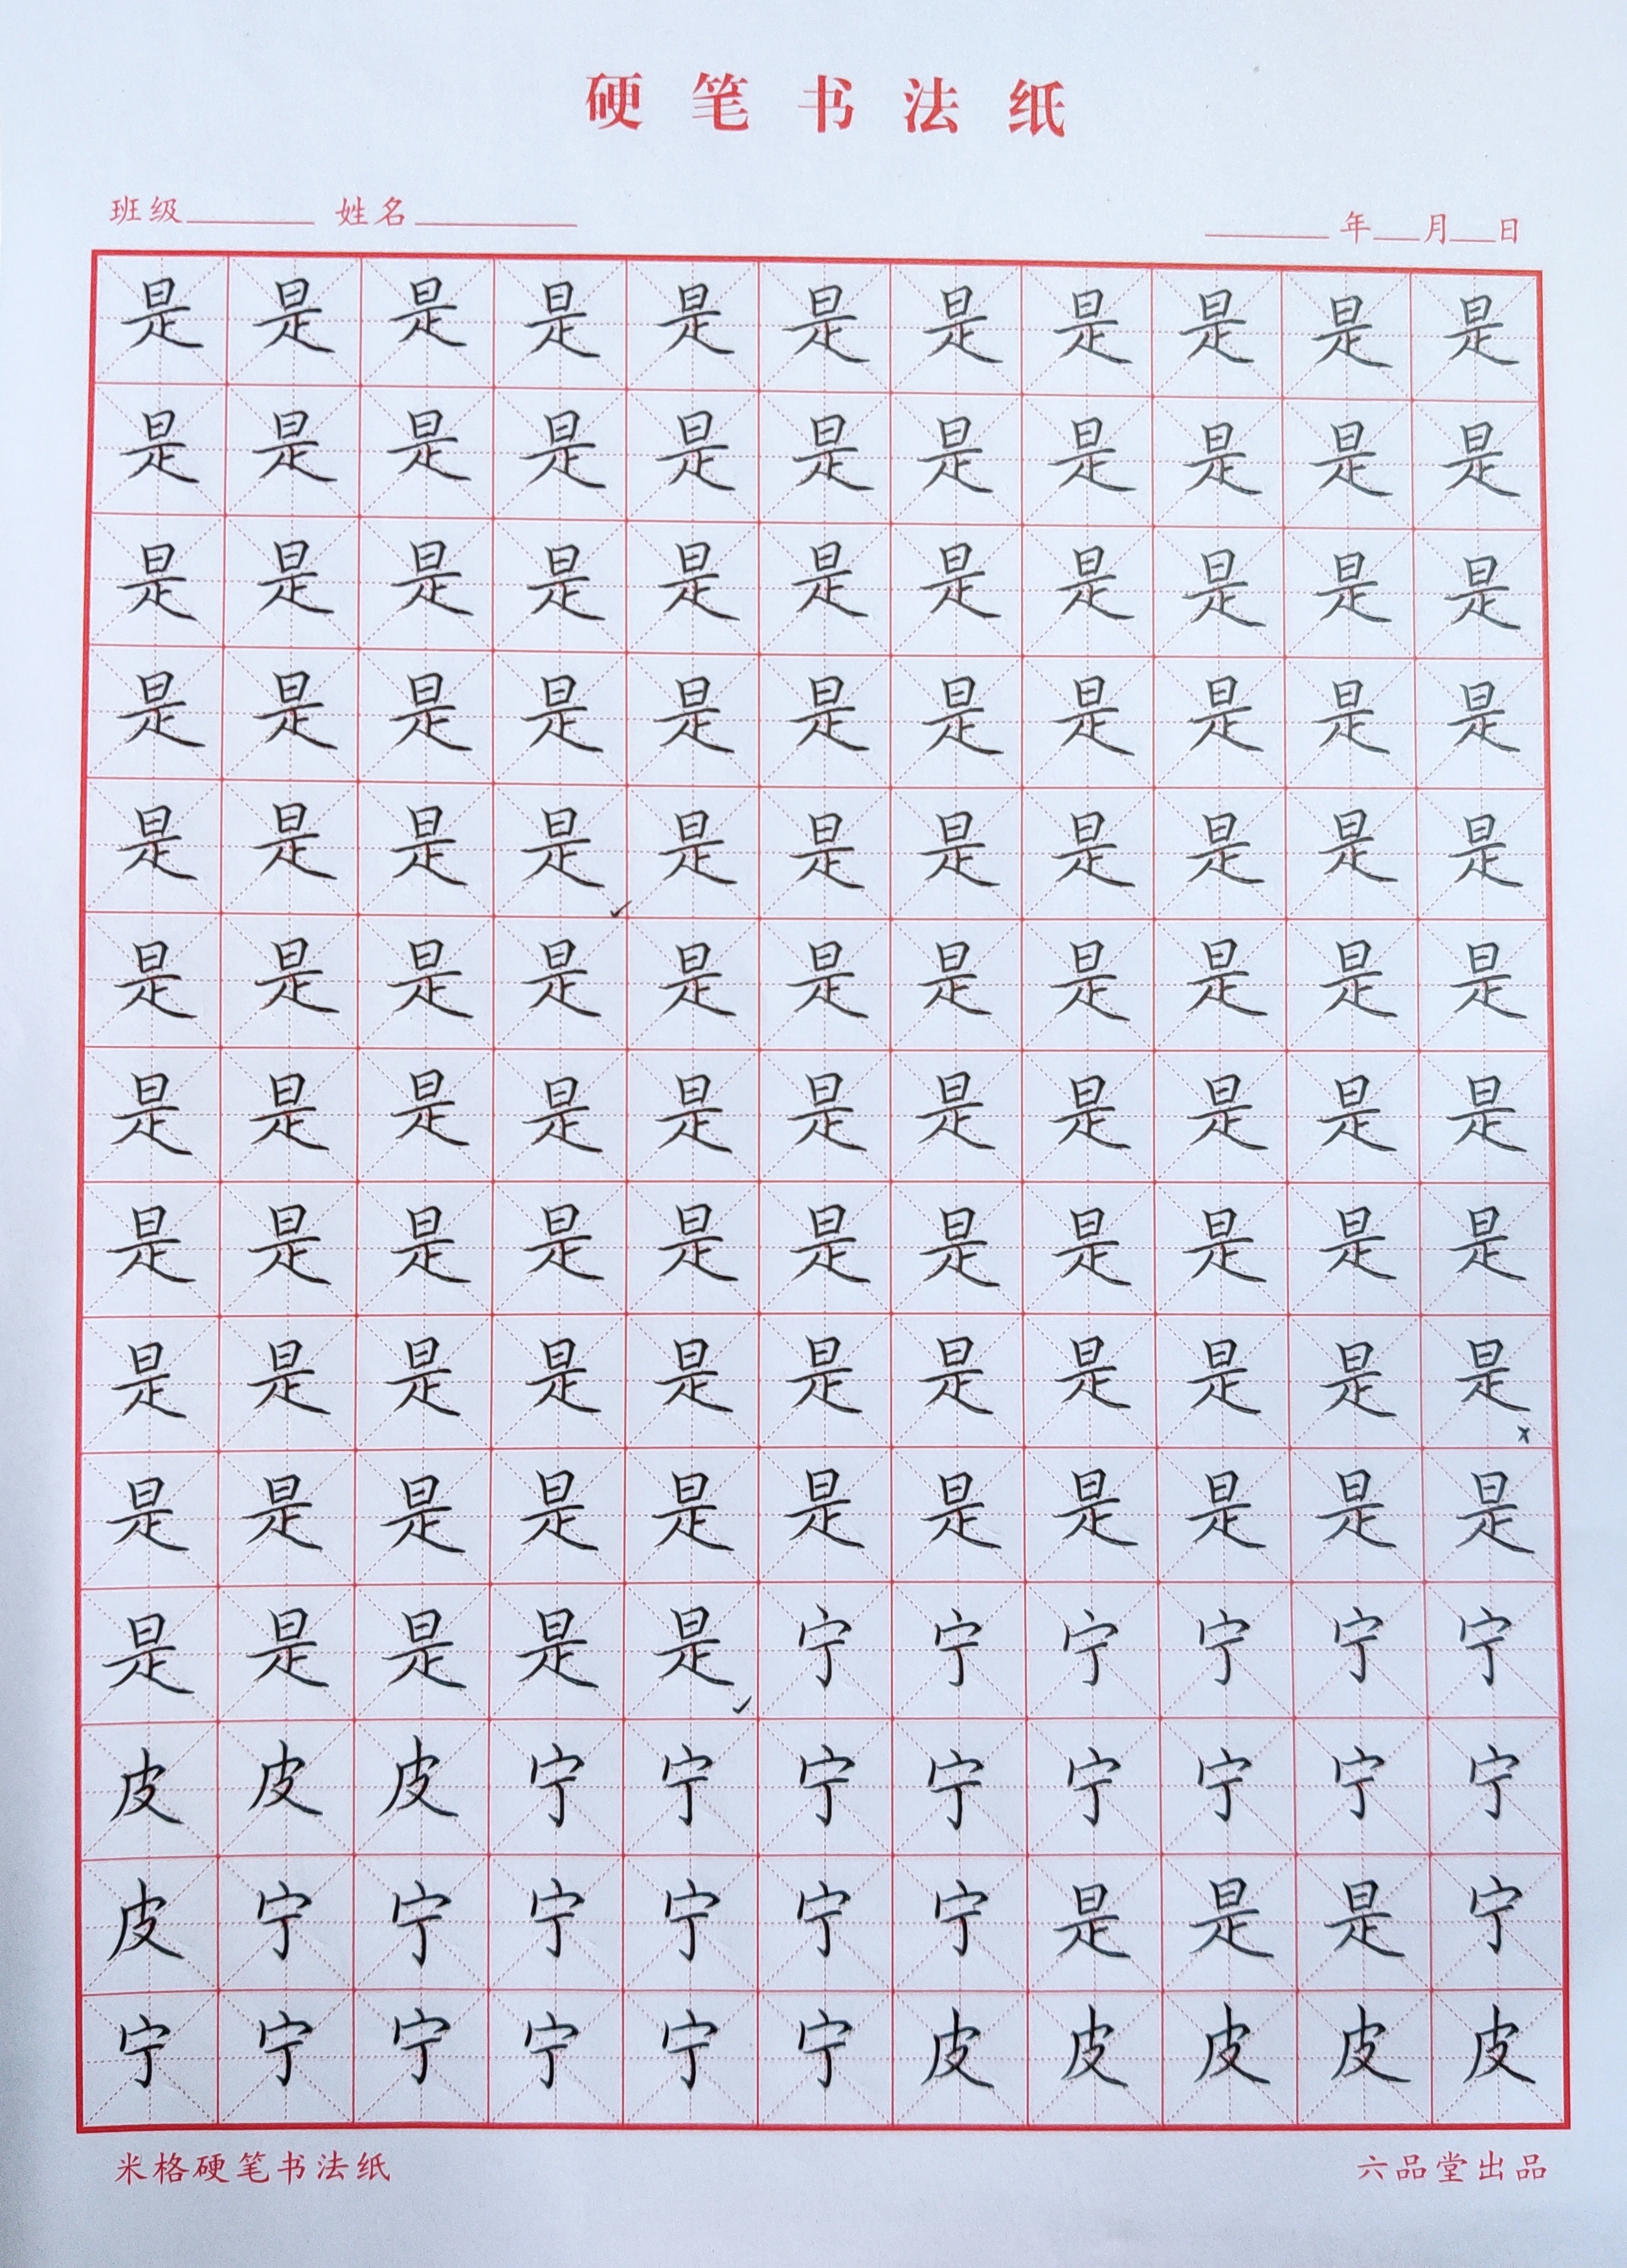 硬笔书法纸
班级 姓名 年 月 日
是是是是是是是是是是是
是是是是是是是是是是是
是是是是是是是是是是是
是是是是是是是是是是是
是是是是是是是是是是是
是是是是是是是是是是是
是是是是是是是是是是是
是是是是是是是是是是是
是是是是是是是是是是是
是是是是是是是是是是是
是是是是是宁宁宁宁宁宁
皮皮皮宁宁宁宁宁宁宁宁
皮宁宁宁宁宁宁是是是宁
宁宁宁宁宁宁皮皮皮皮皮
米格硬笔书法纸 六品堂出品